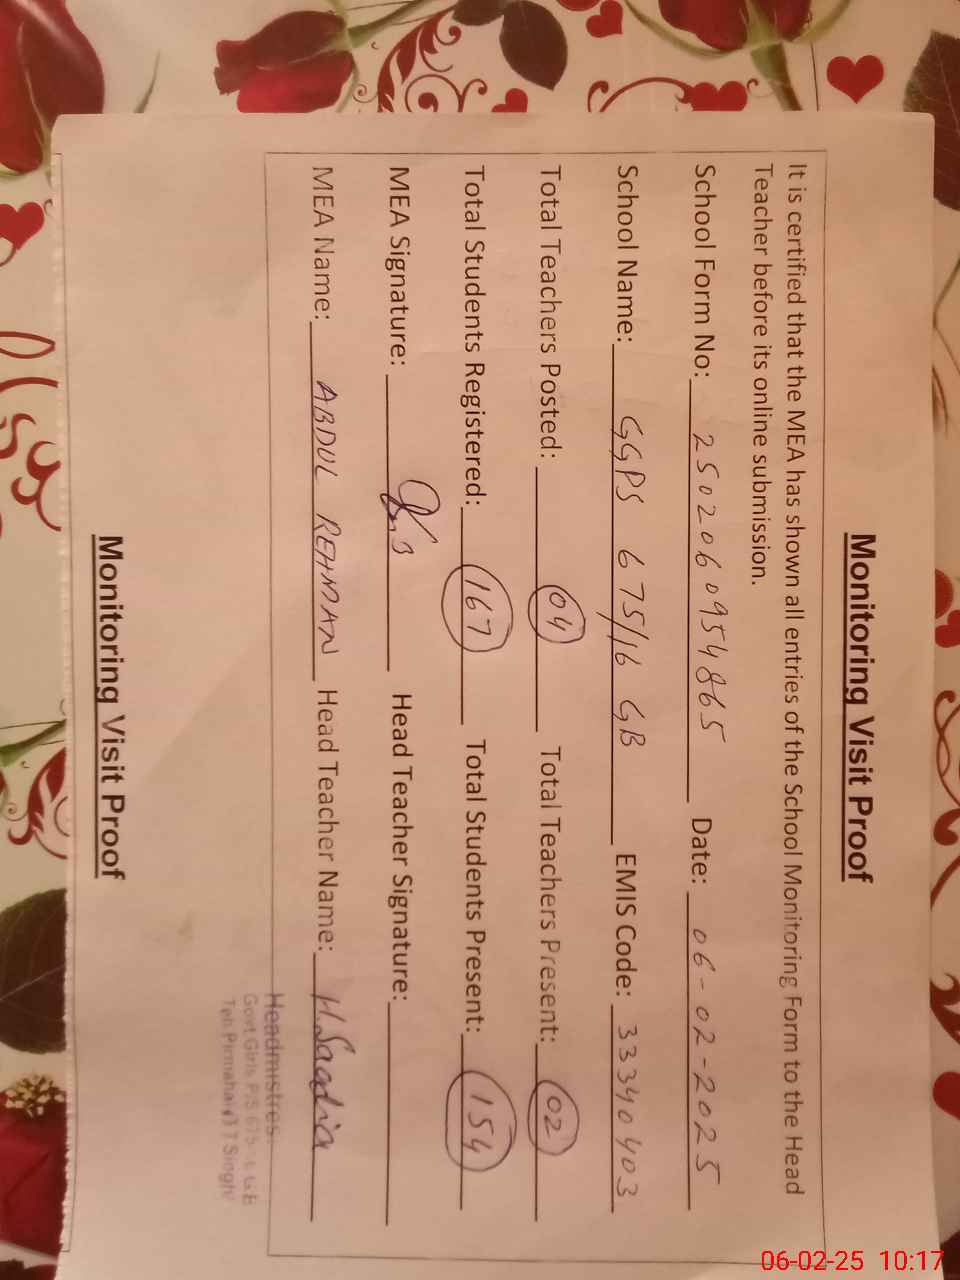 Monitoring Visit Proof
It is certified that the MEA has shown all entries of the School Monitoring Form to the Head
Teacher before its online submission.
School Form No: 2502060954865 Date: 06-02-2025
School Name: GGPS 675/16 GB EMIS Code: 33340403
Total Teachers Posted: 04 Total Teachers Present: 02
Total Students Registered: 167 Total Students Present: 154
MEA Signature: Head Teacher Signature:
MEA Name: ABDUL REHMAN Head Teacher Name: H.Saadia
Headmistres
Govt Girls P/S 675 GB
Teh Pirmahal T T Singh
Monitoring Visit Proof
06-02-25 10:17